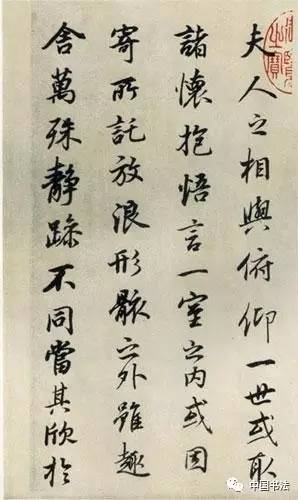 夫人之相與俯仰一世或取
諸懷抱悟言一室之内或因
寄所託放浪形骸之外雖趣
舎萬殊静躁不同當其欣於
中国书法